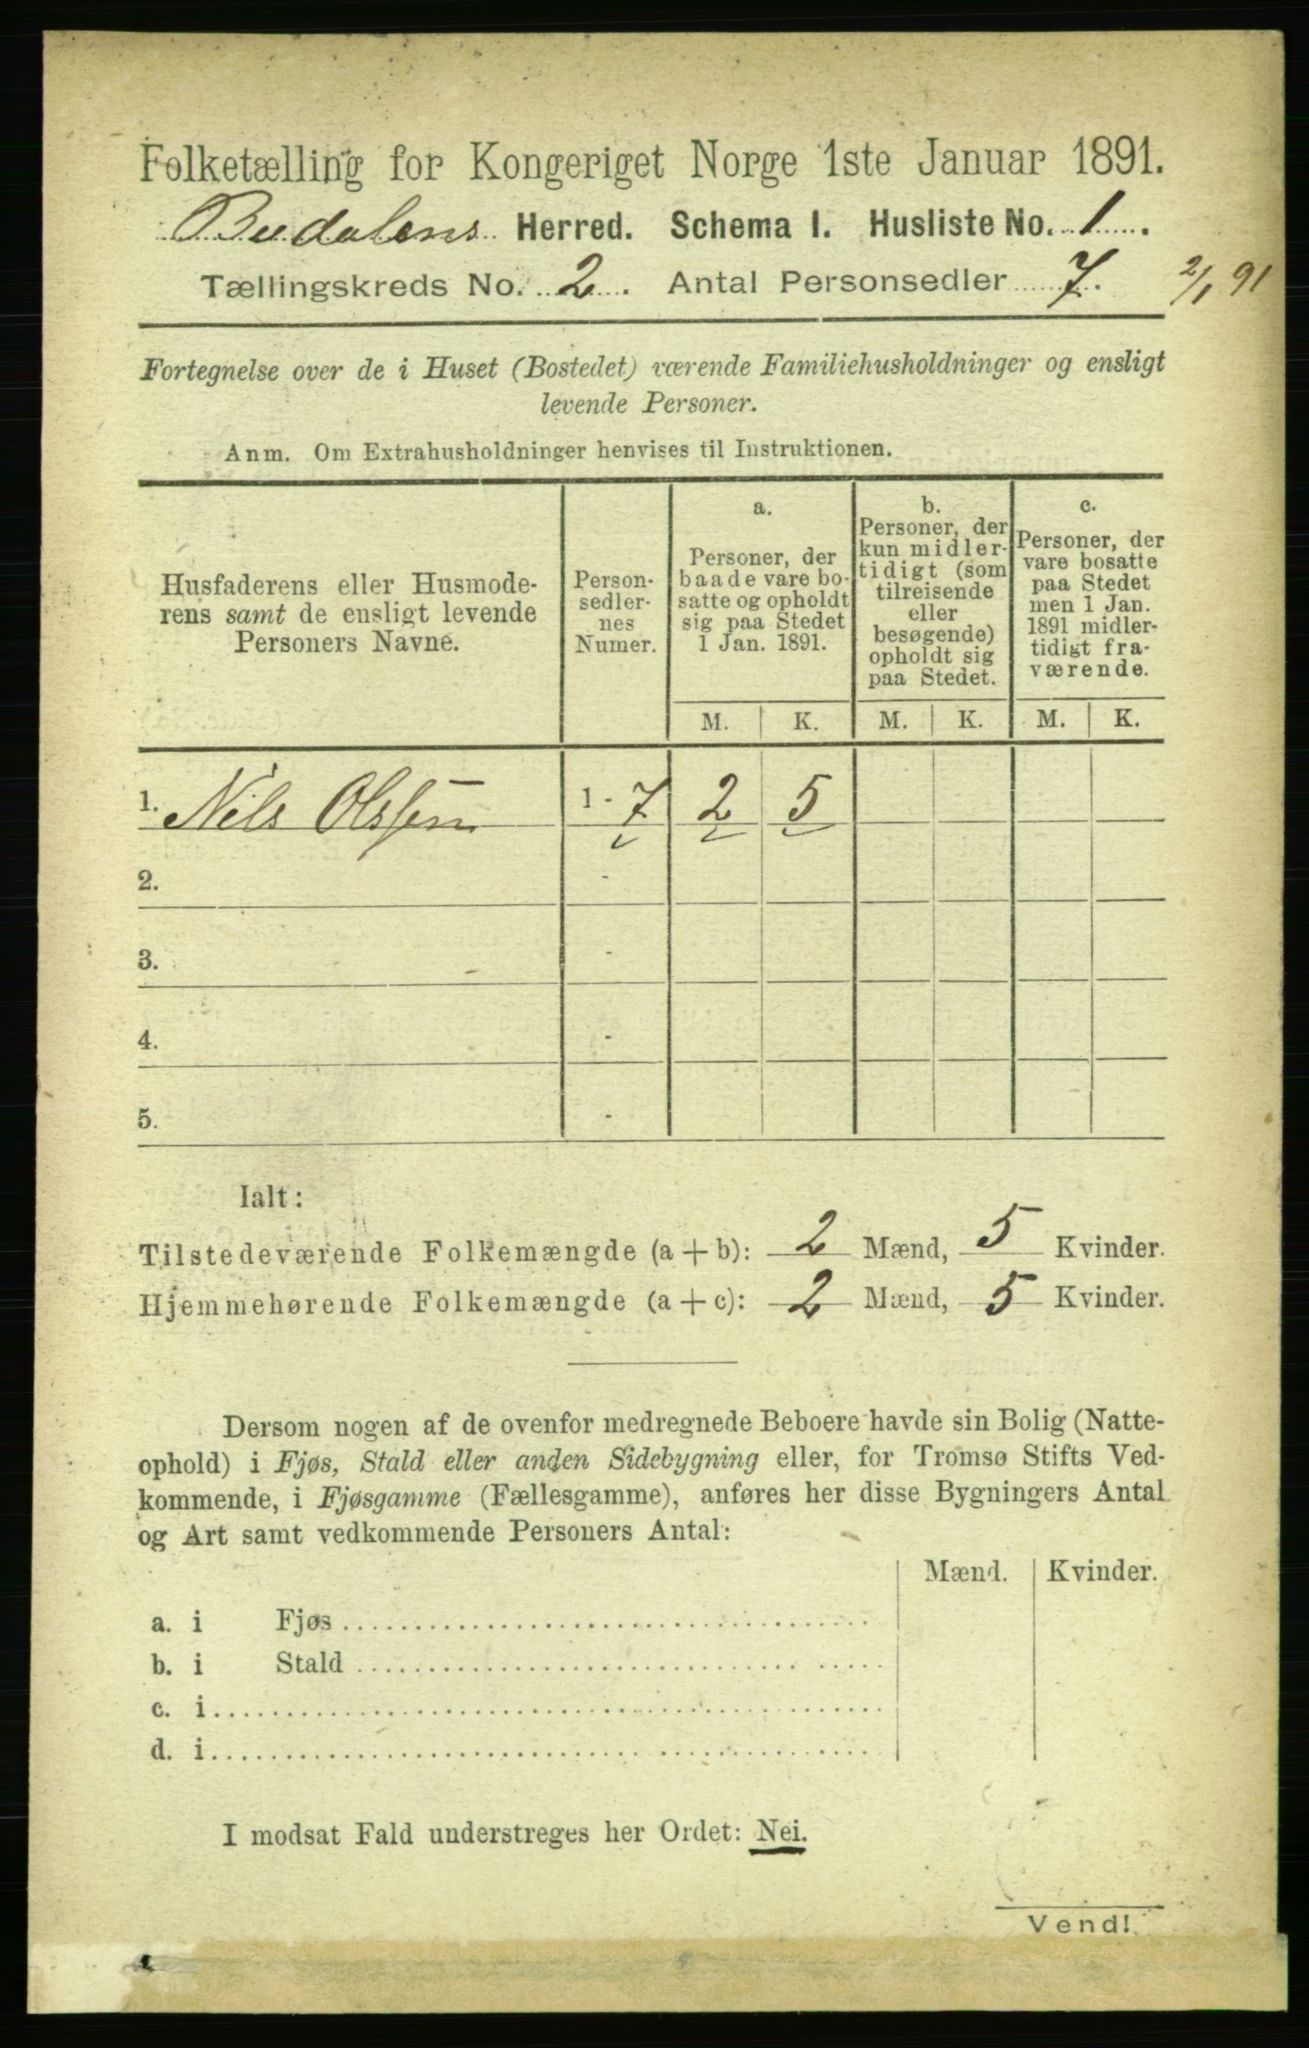 Folketælling for Kongeriget Norge 1ste Januar 1891.
Budalens Herred. Schema I. Husliste No. 1.
Tællingskreds No. 2. Antal Personsedler 7. 2/1 91
Fortegnelse over de i Huset (Bostedet) værende Familiehusholdninger og ensligt
levende Personer.
Anm. Om Extrahusholdninger henvises til Instruktionen.
Husfaderens eller Husmode-
rens samt de ensligt levende
Personers Navne.
Person-
sedler-
nes
Numer.
a.
Personer, der
baade vare bo-
satte og opholdt
sig paa Stedet
1 Jan. 1891.
b.
Personer, der
kun midler-
tidigt (som
tilreisende
eller
besøgende)
opholdt sig
paa Stedet.
c.
Personer, der
vare bosatte
paa Stedet
men 1 Jan.
1891 midler-
tidigt fra-
værende.
M. K. M. K. M. K.
1. Nils Olssen 1 - 7 2 5
2. -
3. -
4. -
5. -
Ialt:
Tilstedeværende Folkemængde (a + b): 2 Mænd, 5 Kvinder.
Hjemmehørende Folkemængde (a + c): 2 Mænd, 5 Kvinder.
Dersom nogen af de ovenfor medregnede Beboere havde sin Bolig (Natte-
ophold) i Fjøs, Stald eller anden Sidebygning eller, for Tromsø Stifts Ved-
kommende, i Fjøsgamme (Fællesgamme), anføres her disse Bygningers Antal
og Art samt vedkommende Personers Antal:
Mænd. Kvinder.
a. i Fjøs
b. i Stald
c. i
d. i
I modsat Fald understreges her Ordet: Nei.
Vend!